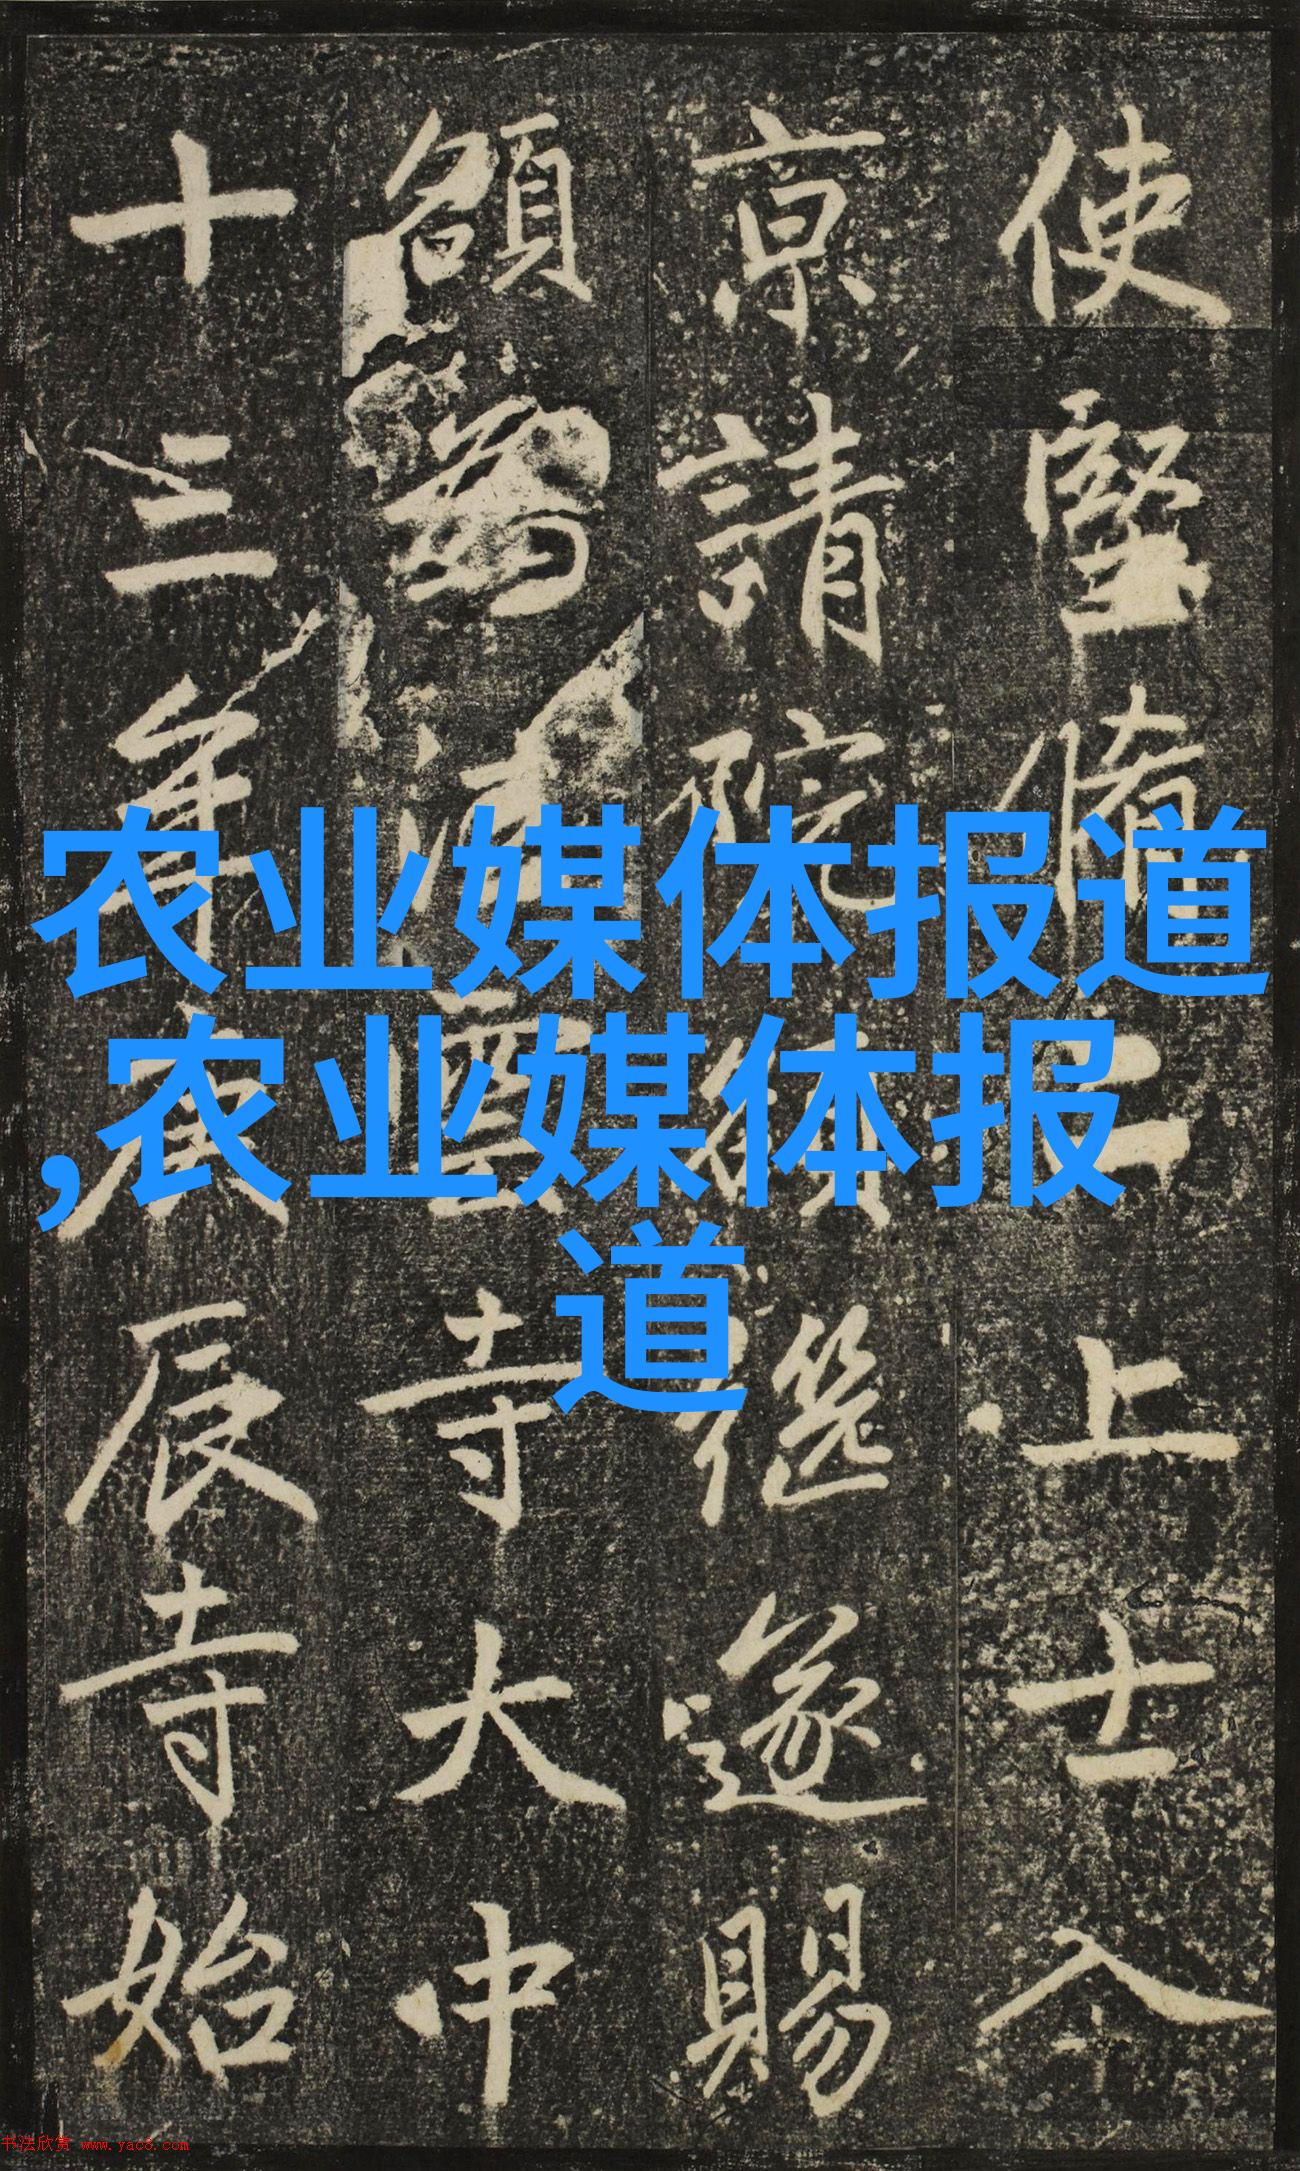 使堅脩二上士入
京請院額繼遂賜
額為
寺大中
十三年庚辰寺始
农业媒体报道
,农业媒体报
道
书法欣赏 www.yac8.com